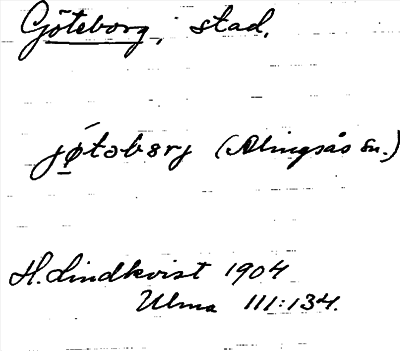 Göteborg, stad.
jǿtəbɛrj (Alingsås sn.)
H. Lindkvist 1904
Ulma 111:134.